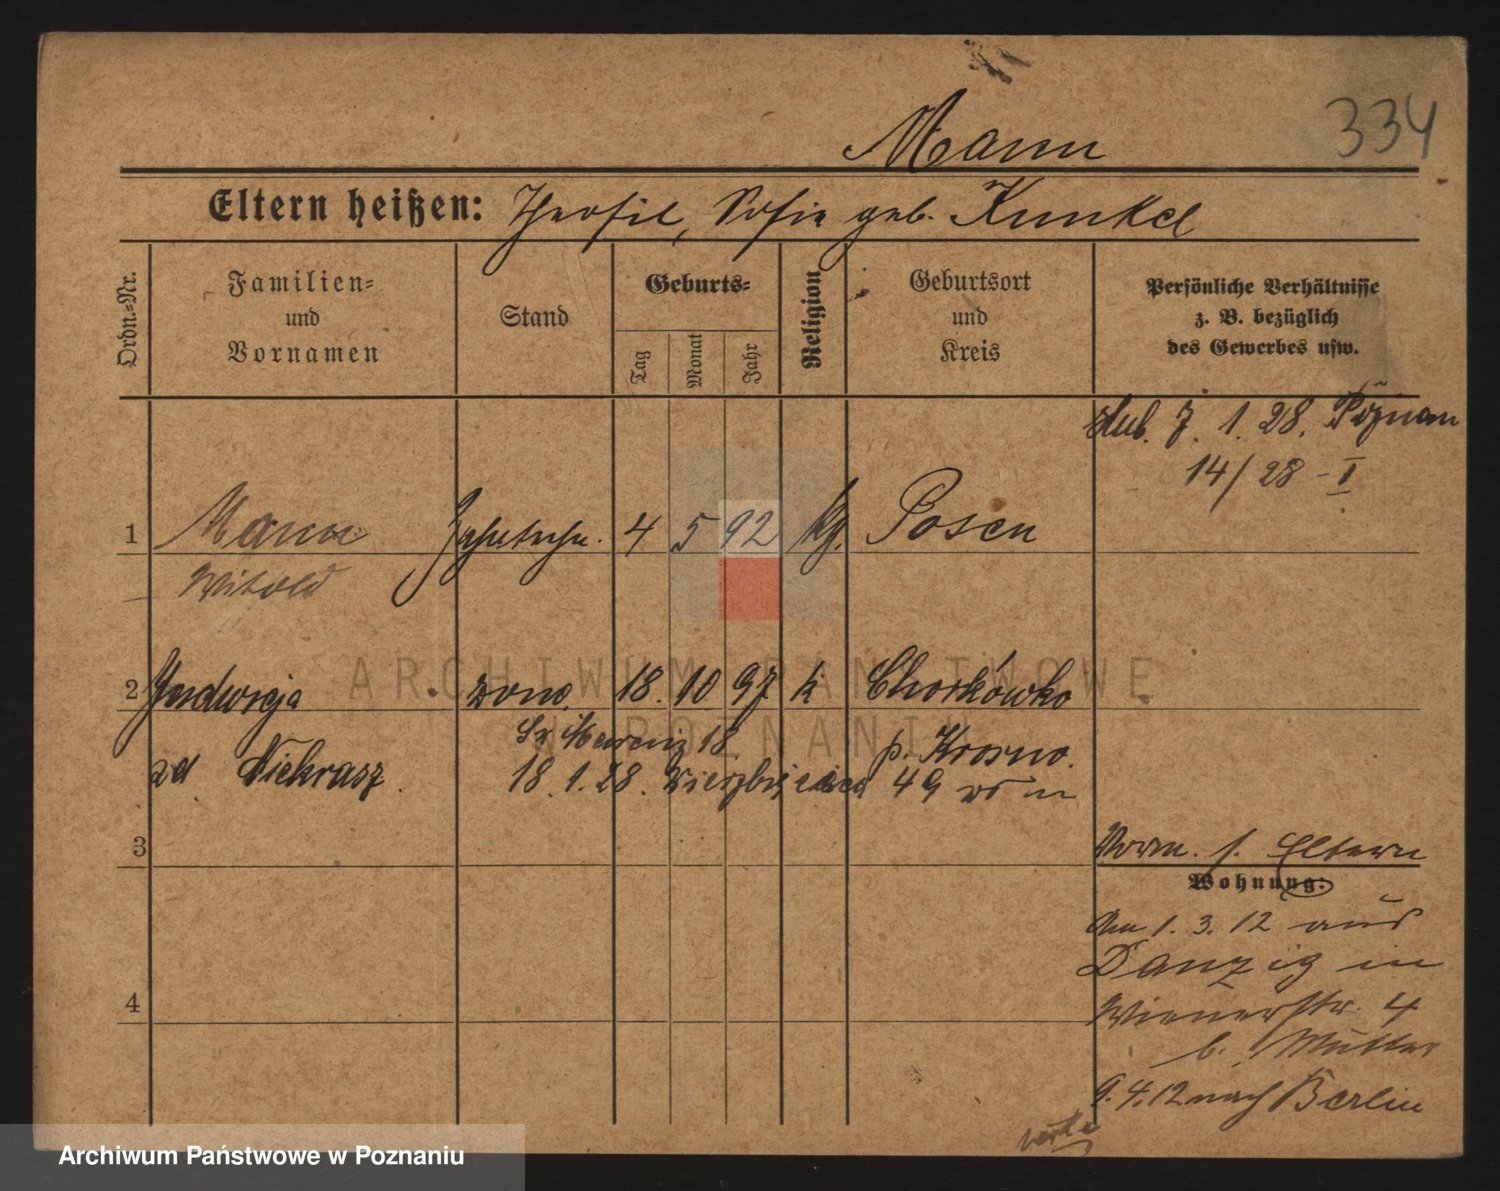 334
Mann
Eltern heißen: Theofil, Sofie geb. Kunkel
Ordn.-Nr.
Familien-
und
Vornamen
Stand
Geburts-
Tag
Monat
Jahr
Religion
Geburtsort
und
Kreis
Persönliche Verhältnisse
z. B. bezüglich
des Gewerbes usw.
7. 1. 28. Poznan
14/28 - I
1 Mann 4 5 92 kg. Posen
Witold
2 Jadwiga żona 18. 10. 97 k Chorkówko
p. Krosno.
zd Niekrasz
18. 1. 28. 49
3
4
Vorm. s. Eltern
Wohnung:
Am 1. 3. 12 aus
Danzig in
Wienerstr. 4
b. Mutter
9. 4. 12 nach Berlin
verte
ARCHIWUM PAŃSTWOWE
W POZNANIU
Archiwum Państwowe w Poznaniu